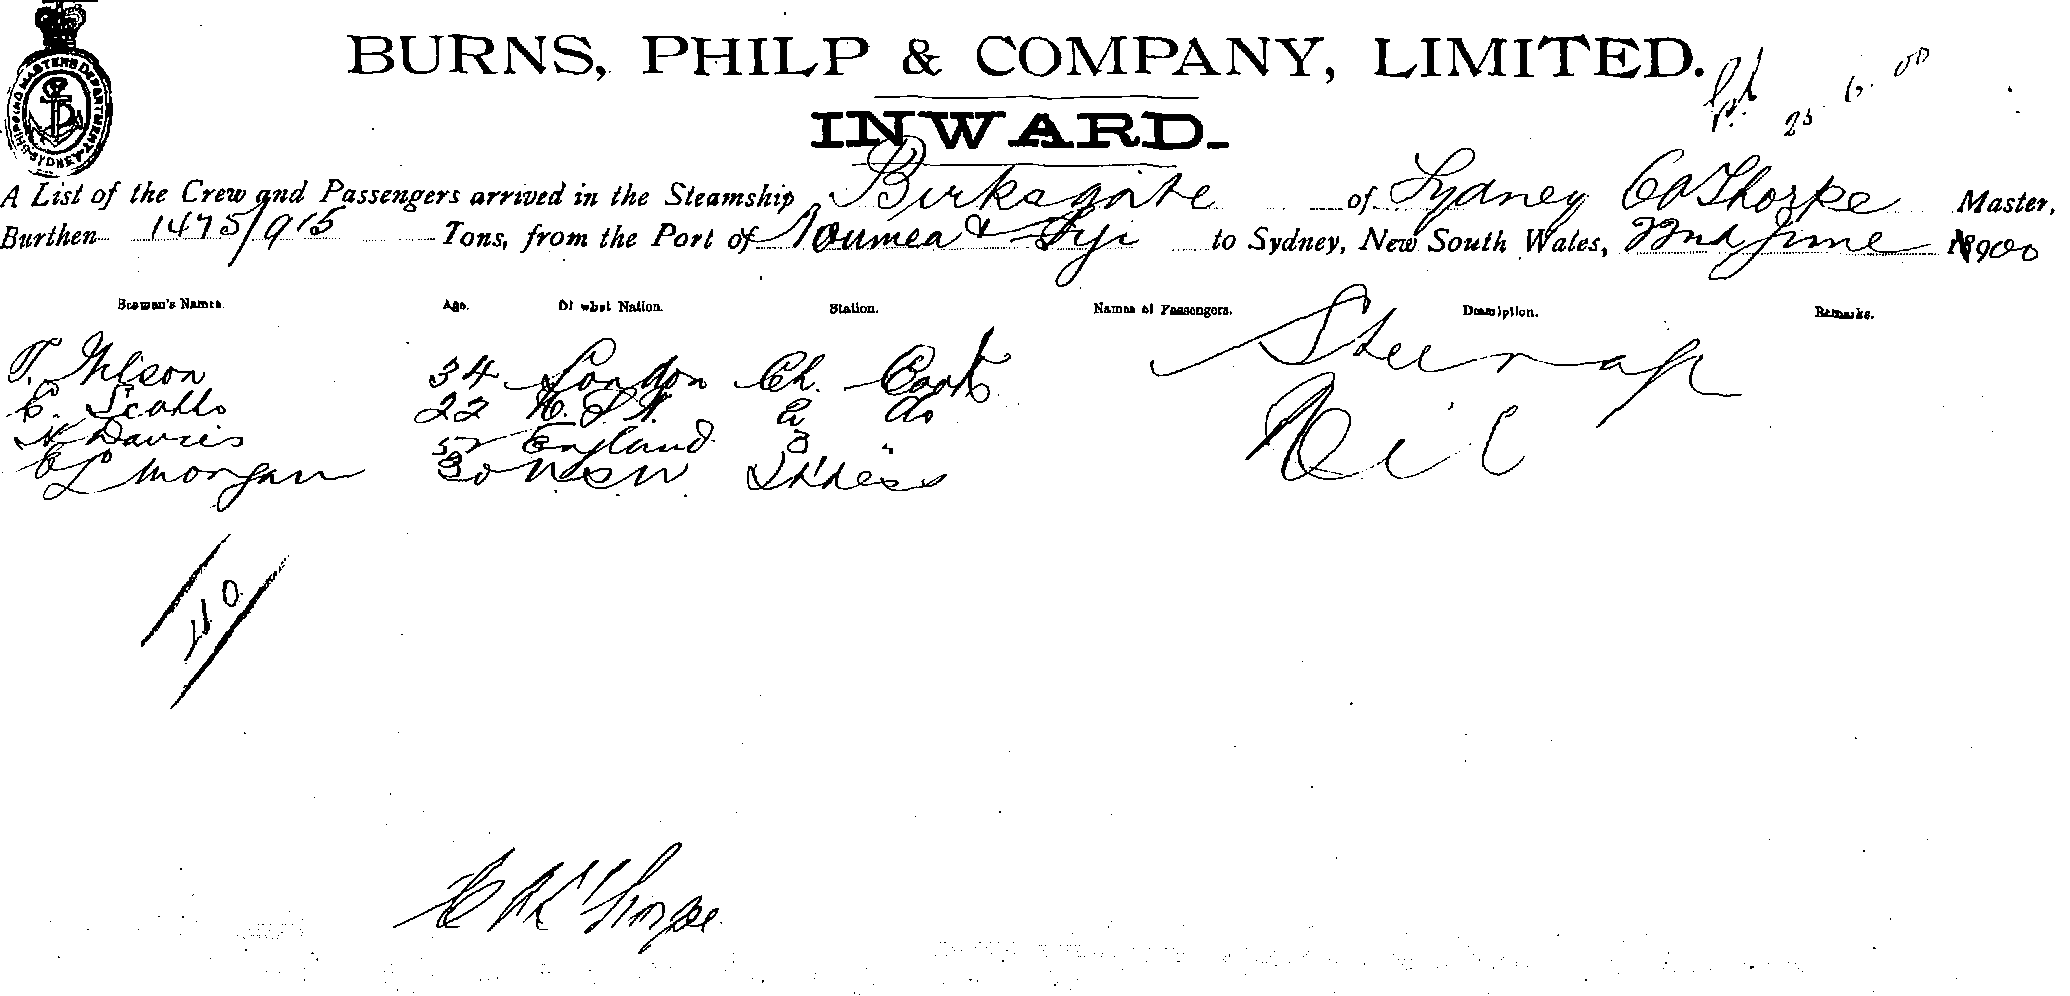 SHIPPING MASTERS DEPARTMENT SYDNEY
BURNS, PHILP & COMPANY, LIMITED.
25 6. 00
INWARD.
A List of the Crew and Passengers arrived in the Steamship Birksgate of Sydney Thorpe Master,
Burthen 1475/915 Tons, from the Port of Noumea & Fiji to Sydney, New South Wales, 22nd June 1900
Seamen's Names. Age. Of what Nation. Station. Names of Passengers. Description. Remarks.
T. Wilson 34 London Ch. Cook Steerage
E. Scotts 22 N.S.W. 2 do Nil
Davies 52 England 3 "
Morgan 30 NSW St'dess
Thorpe